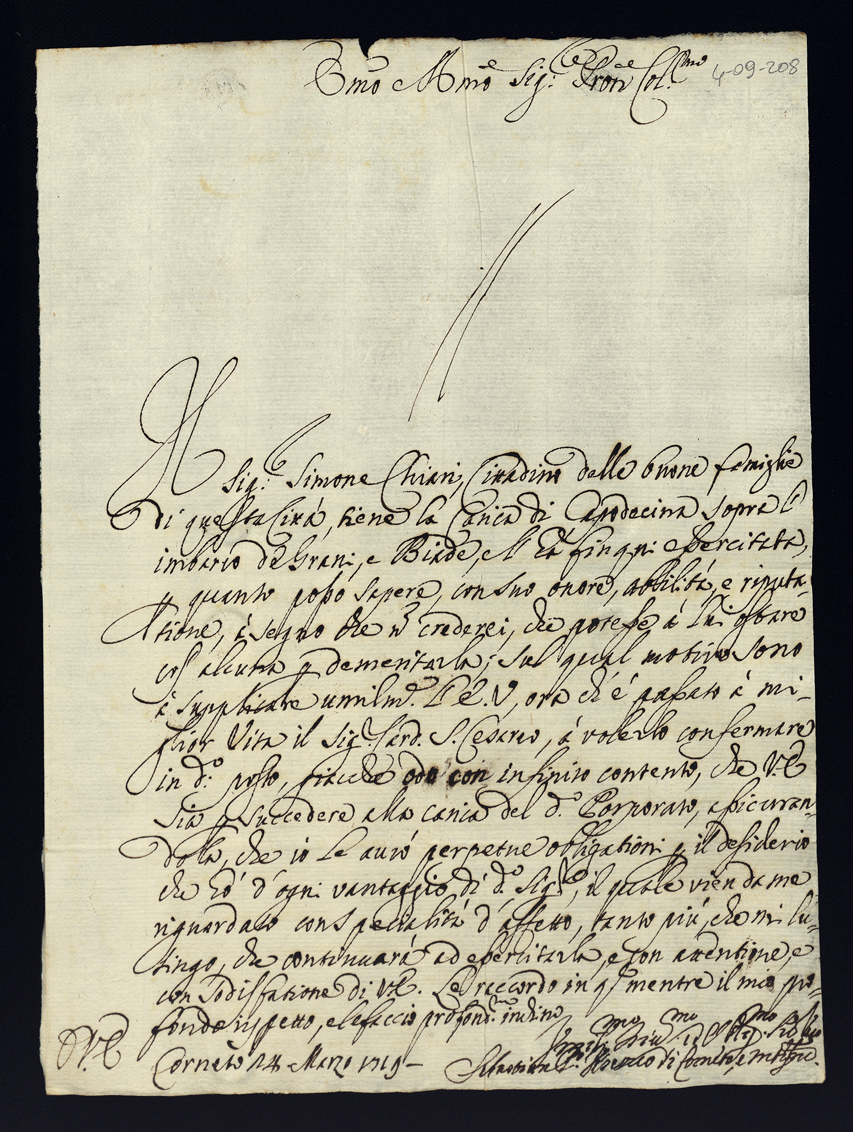 Emo e Rmo Sig:re Pron Colmo
4-09-208
Il
Sig:re Simone Chiari, Cittadino delle buone famiglie
di questa Città, tiene la carica di Capodecina sopra l'
imbarco de Grani, e Biade, e l'hà fin qui esercitata,
p quanto posso sapere, con suo onore, abbilità, e riputa-
tione, à segno che nō crederei, che potesse à lui ostare
cos' alcuna p demeritarla; sul qual motivo sono
à supplicare umilmte l'E. V, ora ch'è passato à mi-
glior Vita il Sigr Card. S. Cesareo, à volerlo confermare
in do posto, giacché odo con infinito contento, che V.E
sia p succedere alla carica del do Porporato, assicuran-
dola, che io le avrò perpetue obligationi p il desiderio
che hò d'ogni vantaggio di do Sigre, il quale vien da me
riguardato con specialità d'affetto, tanto più che mi lu-
singo, che continuarà ad esercitarla, e con attentione, e
con sodisfatione di V.E. Le raccordo in qto mentre il mio pro-
fondo rispetto, e le faccio profondmo inchino
D.V.E
Corneto 14 Marzo 1719
Vescovo di Corneto, e Montefie.